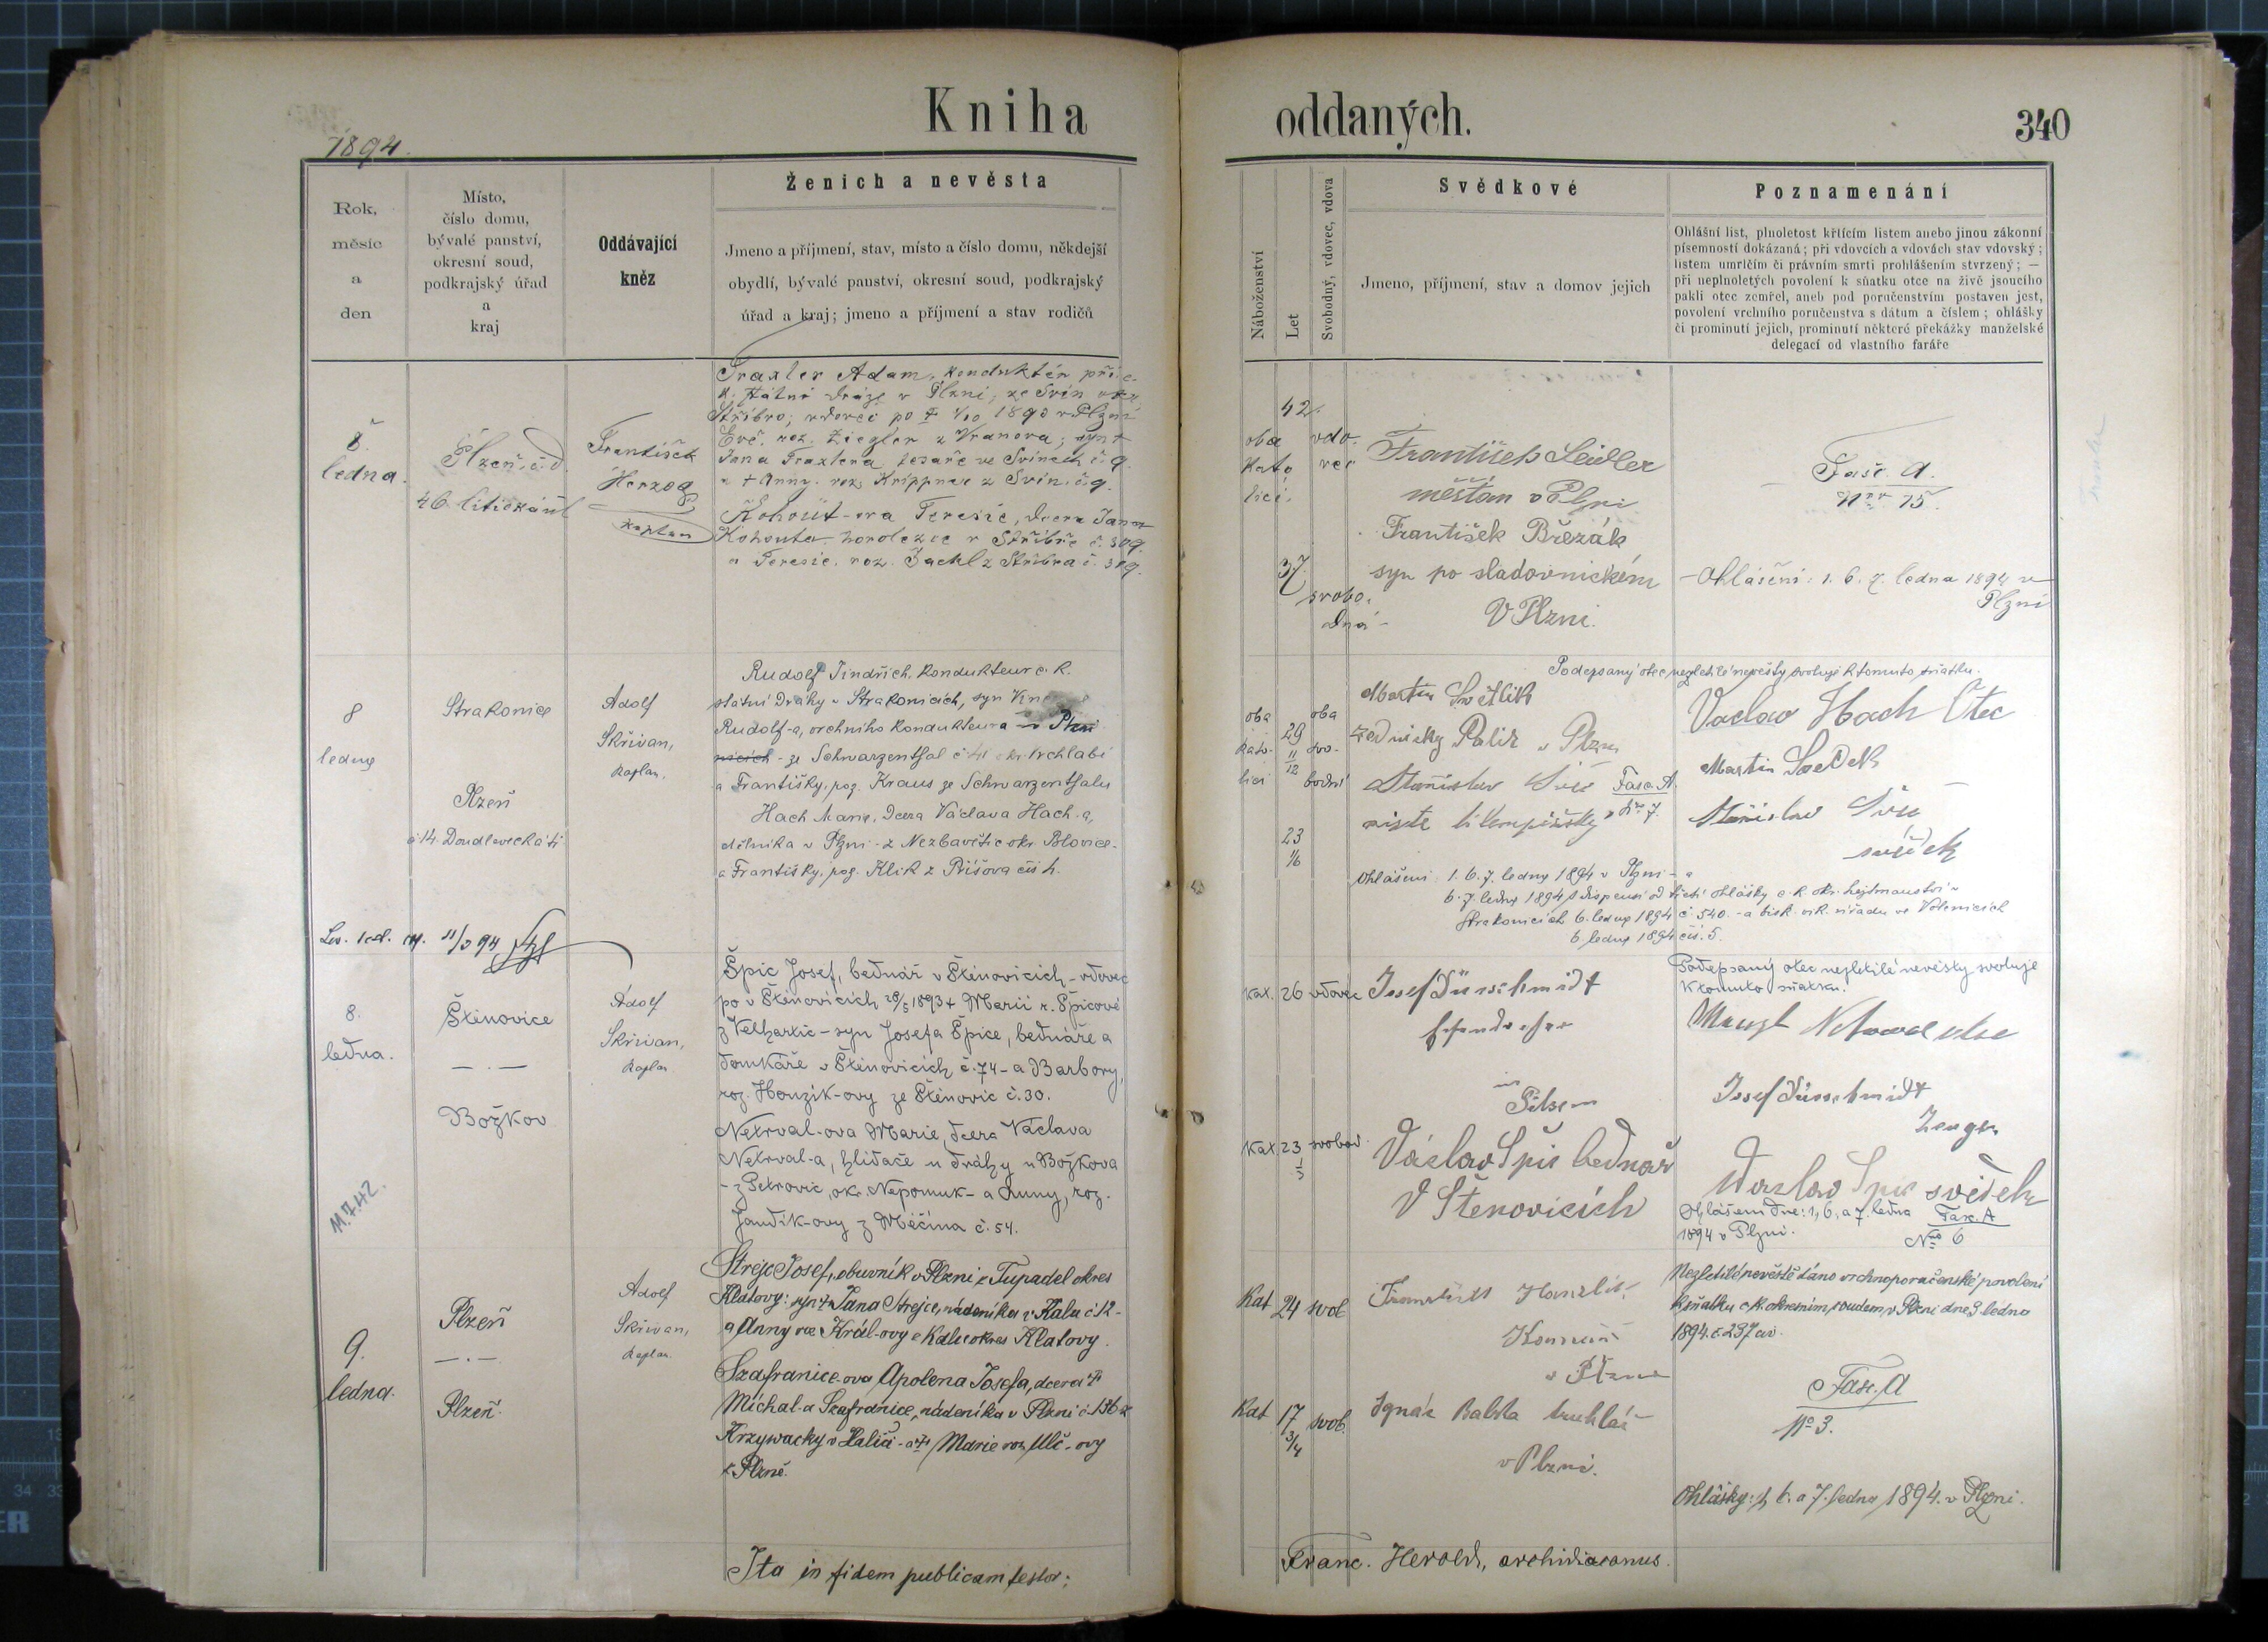 Kniha
oddaných.
340
1894.
Rok,
měsíc
a
den
Místo,
číslo domu,
bývalé panství,
okresní soud,
podkrajský úřad
a
kraj
Oddávající
kněz
Ženich a nevěsta
Jmeno a příjmení, stav, místo a číslo domu, někdejší
obydlí, bývalé panství, okresní soud, podkrajský
úřad a kraj; jmeno a příjmení a stav rodičů
Náboženství
Let
Svobodný, vdovec, vdova
Svědkové
Jmeno, příjmení, stav a domov jejich
Poznamenání
Ohlášní list, plnoletost křtícím listem anebo jinou zákonní
písemností dokázaná; při vdovcích a vdovách stav vdovský;
listem umrlčím či právním smrti prohlášením stvrzený; —
při neplnoletých povolení k sňatku otce na živě jsoucího
pakli otec zemřel, aneb pod poručenstvím postaven jest,
povolení vrchního poručenstva s dátum a číslem; ohlášky
či prominutí jejich, prominutí některé překážky manželské
delegací od vlastního faráře
8.
ledna.
Plzeň, č. d.
46
František
Herzog
kaplan
Traxler Adam, konduktér při c.
k. státní dráze v Plzni, ze Svin okr.
Stříbro, vdovec po † 1/10 1890 v Plzni
Evě, roz. Ziegler z Vranova; syn †
Jana Traxlera, tesaře ve Svinech č. 9.
a † Anny, roz. Krippner z Svin. č. 9.
Kohout-ova Teresie, dcera Jana
Kohouta v Stříbře č. 309.
a Teresie, roz. z Stříbra č. 309.
oba
kato
lici.
42.
vdo.
vec
37
svobo.
dná -
František Seidler
měšťan v Plzni
František Březák
syn po sladovnickém
V Plzni.
Fasc. A.
Nro 15.
Ohlášení: 1. 6. 7. ledna 1894 v
Plzni
8
ledna
Strakonice
Plzeň
č 14. Doudlevecká tř.
Adolf
Skřivan,
kaplan.
Rudolf Jindřich, kondukteur c. k.
státní dráhy v Strakonicích, syn
Rudolf-a, vrchního kondukteura
- ze Schwarzenthal Vrchlabí
a Františky, roz. Kraus ze Schwarzenthalu
Hach Marie, dcera Václava Hach-a,
dělníka v Plzni - z Nezbavětic okr. Blovice -
a Františky, roz. Klik z Příšova čís 4.
oba
kato-
lici
29
11
12
23
1/6
oba
svo-
bodní
Podepsaný otec nezletilé nevěsty svoluje k tomuto sňatku.
Martin Světlík
v Plzni
Stanislav
Fasc. A.
No. 7.
Václav Hach Otec
Martin
Stanislav
svědek
Ohlášení: 1. 6. 7. ledna 1894 v Plzni - a
6. 7. ledna 1894 s dispensí od třetí ohlášky c. k. okr. hejtmanství v
Strakonicích 6. ledna 1894 č. 540. - a bisk. vik. úřadu ve Volenicích
6. ledna 1894 čís. 5.
8.
ledna.
Štěnovice
— . —
Božkov
Adolf
Skřivan,
kaplan
11.7.42.
Špic Josef, bednář v Štěnovicích - vdovec
po v Štěnovicích 28/5 1893 † Marii r. Špicové
z Velhartic - syn Josefa Špice, bednáře a
domkáře v Štěnovicích č. 74 - a Barbory,
roz. Houzik-ovy ze Štěnovic č. 30.
Netrval-ova Marie, dcera Václava
Netrval-a, hlídače u dráhy u Božkova
- z Petrovic, okr. Nepomuk - a Anny, roz.
Jandik-ovy z Měčína č. 54.
kat. 26 vdovec
kat. 23 svobod.
Pilsen
Václav Špic bednář
V Štěnovicích
Podepsaný otec nezletilé nevěsty svoluje
k tomuto sňatku.
Zeuge
Václav Špic svědek
Ohlášení dne: 1, 6, a 7. ledna
1894 v Plzni.
Fasc. A
No 6
9.
ledna.
Plzeň
— . —
Plzeň.
Adolf
Skřivan,
kaplan.
Strejc Josef, obuvník v Plzni z Tupadel okres
Klatovy: syn † Jana Strejce, nádeníka v Kalu č 12 -
a Anny roz Král-ovy z Kalu okres Klatovy.
Szafranice-ova Apolena Josefa, dcera †
Michal-a Szafranice, nádeníka v Plzni č. 136 z
Krzywacky v Halič - a † Marie roz Ulč-ovy
z Plzně.
Kat 24 svob.
Kat 17 svob.
3/4
František Hanzlík
v Plzni
Ignác Balda truhlář
v Plzni.
Nezletilé nevěstě dáno vrchnoporučenské povolení
k sňatku c. k. okresním soudem v Plzni dne 3 ledna
1894. č. 237
Fasc. A
No 3.
Ohlášky: 1, 6. a 7. ledna 1894. v Plzni.
Ita in fidem publicam testor:
Franc. Herold, archidiaconus.